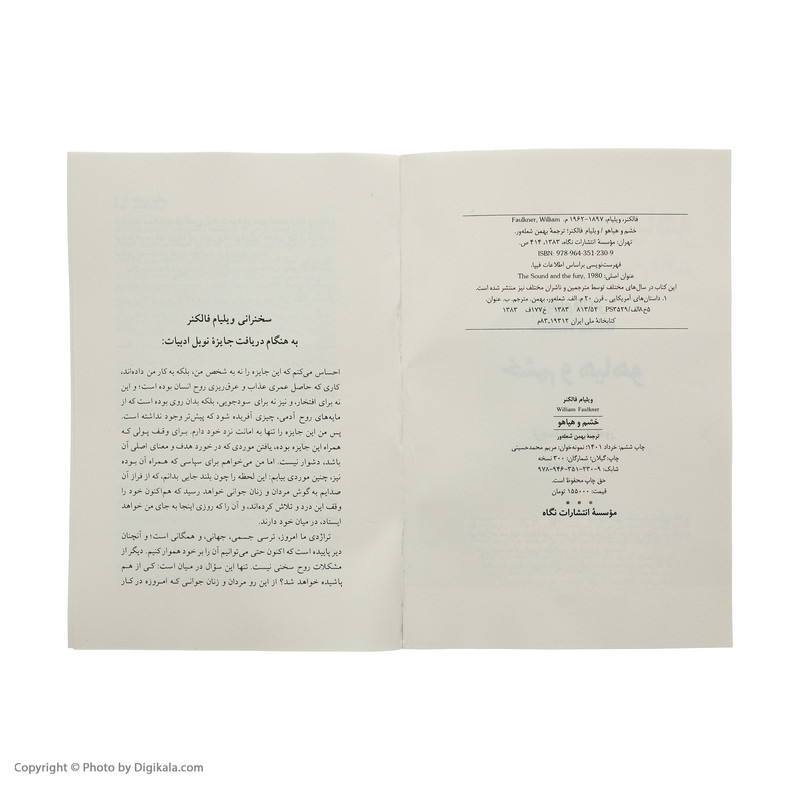 فالکنر، ویلیام، ۱۸۹۷-۱۹۶۲ م. Faulkner, William
خشم و هیاهو / ویلیام فالکنر؛ ترجمهٔ بهمن شعله‌ور.
تهران: مؤسسهٔ انتشارات نگاه، ۱۳۸۳، ۴۱۴ ص.
ISBN: 978-964-351-230-9
فهرست‌نویسی براساس اطلاعات فیپا.
عنوان اصلی: The Sound and the fury, 1980
این کتاب در سال‌های مختلف توسط مترجمین و ناشران مختلف نیز منتشر شده است.
۱. داستان‌های آمریکایی - قرن ۲۰ م. الف. شعله‌ور، بهمن، مترجم. ب. عنوان.
۵خ۸الف/PS۳۵۲۹ ۸۱۳/۵۴ ۱۳۸۳ خ۱۷۷ف ۱۳۸۳
کتابخانهٔ ملی ایران ۱۹۳۱۲-۸۳م
ویلیام فالکنر
William Faulkner
خشم و هیاهو
ترجمهٔ بهمن شعله‌ور
چاپ ششم: خرداد ۱۴۰۱؛ نمونه‌خوان: مریم محمدحسینی
چاپ: گیلان؛ شمارگان: ۳۰۰ نسخه
شابک: ۹-۲۳۰-۳۵۱-۹۴۶-۹۷۸
حق چاپ محفوظ است.
قیمت: ۱۵۵۰۰۰ تومان
* * *
مؤسسهٔ انتشارات نگاه
سخنرانی ویلیام فالکنر
به هنگام دریافت جایزهٔ نوبل ادبیات:
احساس می‌کنم که این جایزه را نه به شخص من، بلکه به کار من داده‌اند،
کاری که حاصل عمری عذاب و عرق‌ریزی روح انسان بوده است؛ و این
نه برای افتخار، و نیز نه برای سودجویی، بلکه بدان روی بوده است که از
مایه‌های روح آدمی، چیزی آفریده شود که پیش‌تر وجود نداشته است.
پس من این جایزه را تنها به امانت نزد خود دارم. برای وقف پولی که
همراه این جایزه بوده، یافتن موردی که در خورد هدف و معنای اصلی آن
باشد، دشوار نیست. اما من می‌خواهم برای سپاسی که همراه آن بوده
نیز، چنین موردی بیابم: این لحظه را چون بلند جایی بدانم، که از فراز آن
صدایم به گوش مردان و زنان جوانی خواهد رسید که هم‌اکنون خود را
وقف این درد و تلاش کرده‌اند، و آن را که روزی اینجا به جای من خواهد
ایستاد، در میان خود دارند.
تراژدی ما امروز، ترسی جسمی، جهانی، و همگانی است؛ و آنچنان
دیر پاییده است که اکنون حتی می‌توانیم آن را بر خود هموار کنیم. دیگر از
مشکلات روح سخنی نیست. تنها این سؤال در میان است: کی از هم
پاشیده خواهد شد؟ از این رو مردان و زنان جوانی که امروزه در کار
Copyright © Photo by Digikala.com